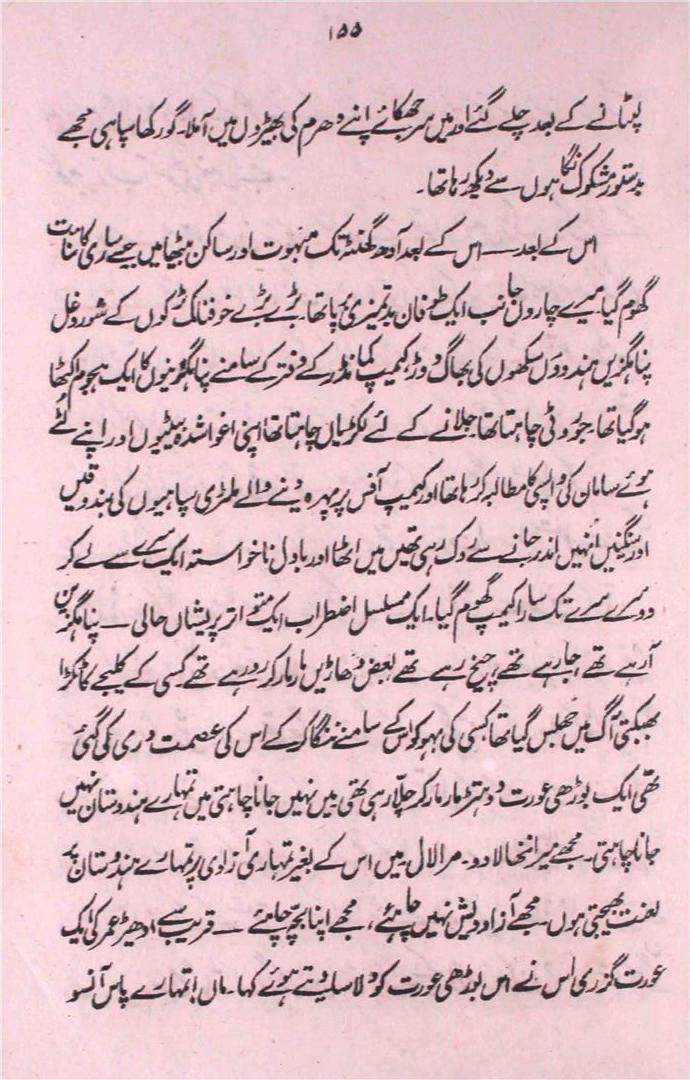 ۱۵۵
پہنانے کے بعد چلے گئے اور میں سر جھکائے اپنے دھرم کی بھیڑوں میں آملا۔ گورکھا سپاہی مجھے
بدستور مشکوک نگاہوں سے دیکھ رہا تھا۔
اس کے بعد — اس کے بعد آدھ گھنٹہ تک مبہوت اور ساکن بیٹھا میں جیسے ساری کائنات
گھوم گیا۔ میرے چاروں جانب ایک طوفان بدتمیزی بپا تھا۔ بڑے بڑے خوفناک ٹرکوں کے شور و غل
پناہگزیں ہندوؤں سکھوں کی بھاگ دوڑ کیمپ کمانڈر کے دفتر کے سامنے پناہگزینوں کا ایک ہجوم اکٹھا
ہو گیا تھا۔ جو روٹی چاہتا تھا جلانے کے لئے لکڑیاں چاہتا تھا اپنی اغوا شدہ بیٹیوں اور اپنے لُٹے
ہوئے سامان کی واپسی کا مطالبہ کر رہا تھا اور کیمپ آفس پر پہرہ دینے والے ملٹری سپاہیوں کی بندوقیں
اور سنگینیں اُنہیں اندر جانے سے روک رہی تھیں میں اٹھا اور بادل ناخواستہ ایک سرے سے لے کر
دوسرے سرے تک سارا کیمپ گھوم گیا۔ ایک مسلسل اضطراب ایک متواتر پریشاں حالی — پناہگزین
آرہے تھے جا رہے تھے، چیخ رہے تھے بعض دھاڑیں مار مار کر رو رہے تھے کسی کے کلیجے کا ٹکڑا
بھبکتی آگ میں جھلس گیا تھا کسی کی بہو کو اس کے سامنے ننگا کر کے اس کی عصمت دری کی گئی
تھی ایک بوڑھی عورت دوہتڑ مار مار کر چلّا رہی تھی میں نہیں جانا چاہتی میں تمہارے ہندوستان نہیں
جانا چاہتی۔ مجھے میرا ننھا لا دو۔ مرا لال میں اس کے بغیر تمہاری آزادی پر تمہارے ہندوستان پر
لعنت بھیجتی ہوں۔ مجھے آزاد دیش نہیں چاہئے، مجھے اپنا بچّہ چاہئے — قریب سے ادھیڑ عمر کی ایک
عورت گزری اس نے اس بوڑھی عورت کو دلاسا دیتے ہوئے کہا۔ ماں! تمہارے پاس آنسو